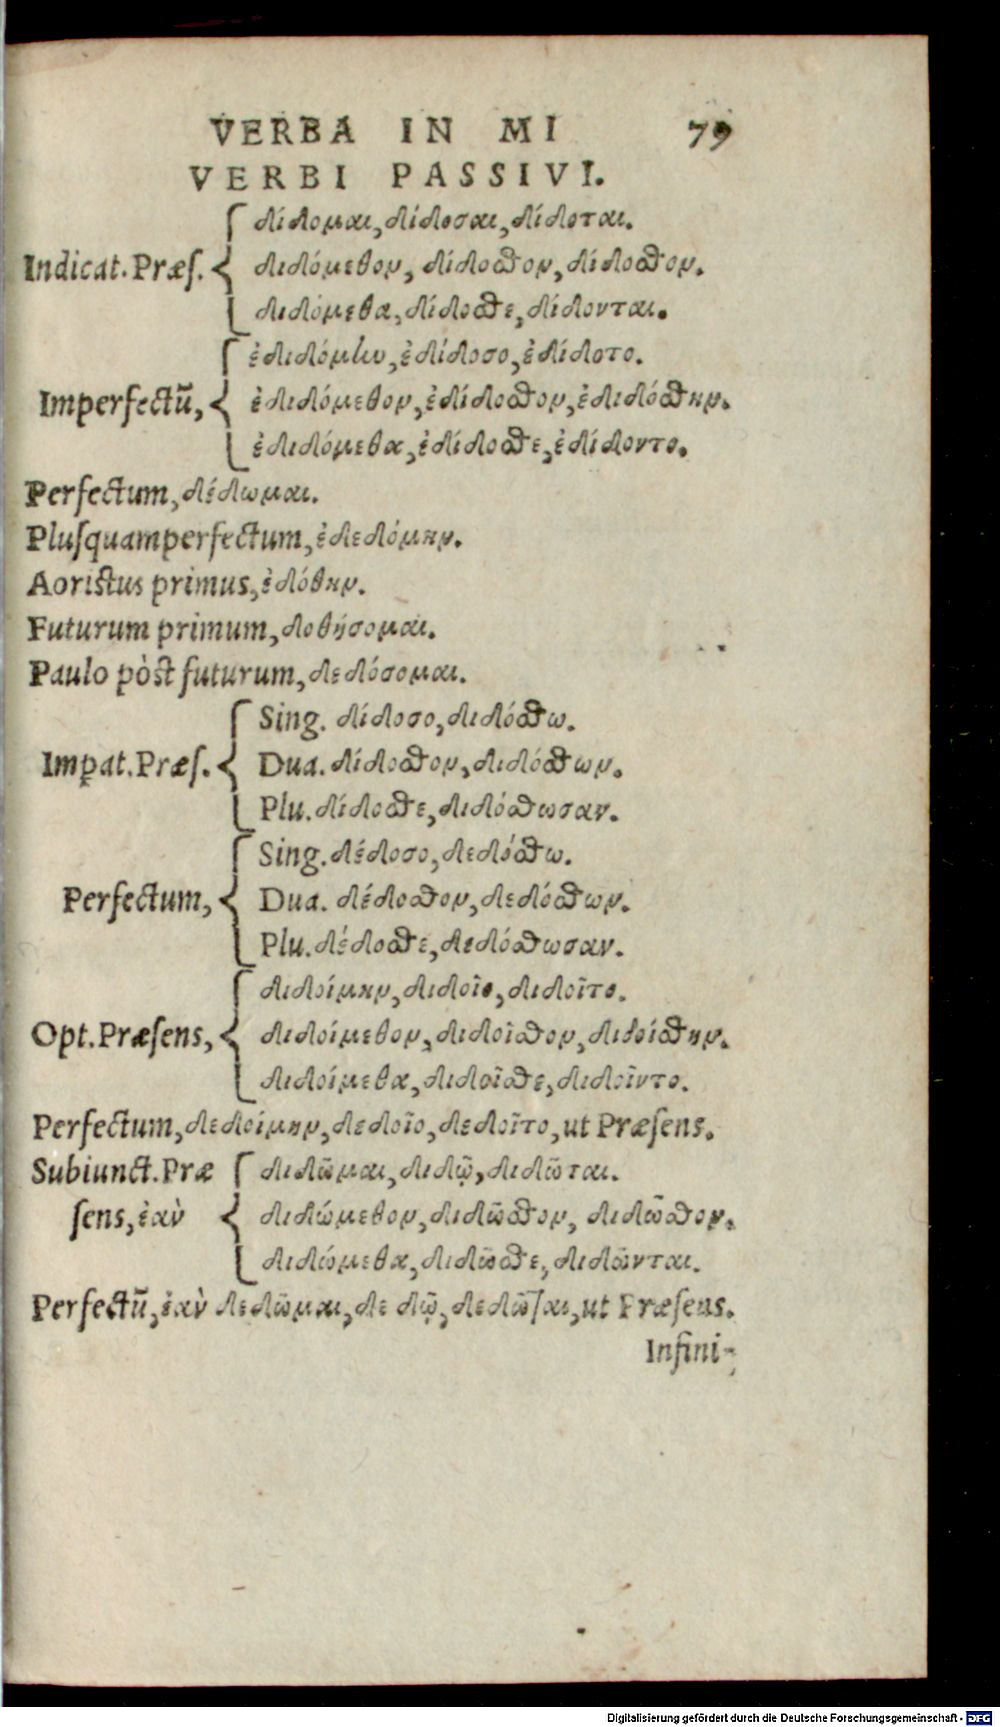 VERBA IN MI 79
VERBI PASSIVI.
δίδομαι, δίδοσαι, δίδοται.
Indicat. Præſ. διδόμεθον, δίδοσθον, δίδοσθον.
διδόμεθα, δίδοσθε, δίδονται.
ἐδιδόμην, ἐδίδοσο, ἐδίδοτο.
Imperfectū, ἐδιδόμεθον, ἐδίδοσθον, ἐδιδόσθην.
ἐδιδόμεθα, ἐδίδοσθε, ἐδίδοντο.
Perfectum, δέδωμαι.
Pluſquamperfectum, ἐδεδόμην.
Aoristus primus, ἐδόθην.
Futurum primum, δοθήσομαι.
Paulo pòst futurum, δεδόσομαι.
Sing. δίδοσο, διδόσθω.
Imꝑat. Præſ. Dua. δίδοσθον, διδόσθων.
Plu. δίδοσθε, διδόσθωσαν.
Sing. δέδοσο, δεδόσθω.
Perfectum, Dua. δέδοσθον, δεδόσθων.
Plu. δέδοσθε, δεδόσθωσαν.
διδοίμην, διδοῖο, διδοῖτο.
Opt. Præſens, διδοίμεθον, διδοῖσθον, διδοίσθην.
διδοίμεθα, διδοῖσθε, διδοῖντο.
Perfectum, δεδοίμην, δεδοῖο, δεδοῖτο, ut Præſens.
Subiunct. Præ διδῶμαι, διδῷ, διδῶται.
ſens, ἐὰν διδώμεθον, διδῶσθον, διδῶσθον.
διδώμεθα, διδῶσθε, διδῶνται.
Perfectū, ἐὰν δεδῶμαι, δε δῷ, δεδῶται, ut Præſens.
Infini-
Digitalisierung gefördert durch die Deutsche Forschungsgemeinschaft - DFG